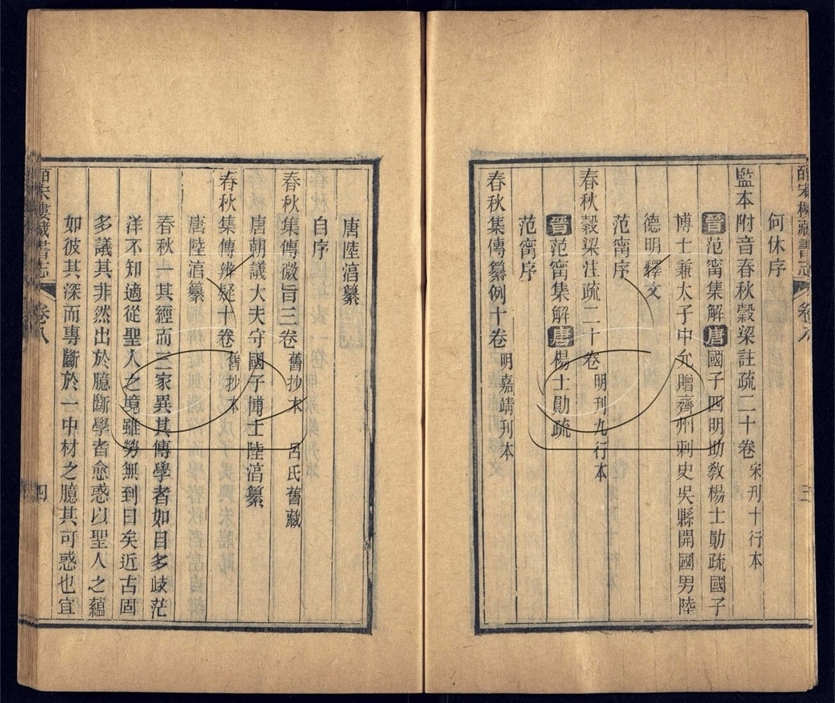 何休序
監本附音春秋穀梁註疏二十卷 宋刊十行本
晉范甯集解唐國子四明助教楊士勛疏國子
博士兼太子中允贈齊州刺史吳縣開國男陸
德明釋文
范甯序
春秋穀梁注疏二十卷 明刊九行本
晉范甯集解唐楊士勛疏
范甯序
春秋集傳纂例十卷 明嘉靖刊本
皕宋樓藏書志 卷八 三
唐陸淳纂
自序
春秋集傳微旨三卷 舊抄本 呂氏舊藏
唐朝議大夫守國子博士陸淳纂
春秋集傳辨疑十卷 舊抄本
唐陸淳纂
春秋一其經而三家異其傳學者如目多歧茫
洋不知適從聖人之境雖勞無到日矣近古固
多議其非然出於臆斷學者愈惑以聖人之蘊
如彼其深而專斷於一中材之臆其可惑也宜
皕宋樓藏書志 卷八 四